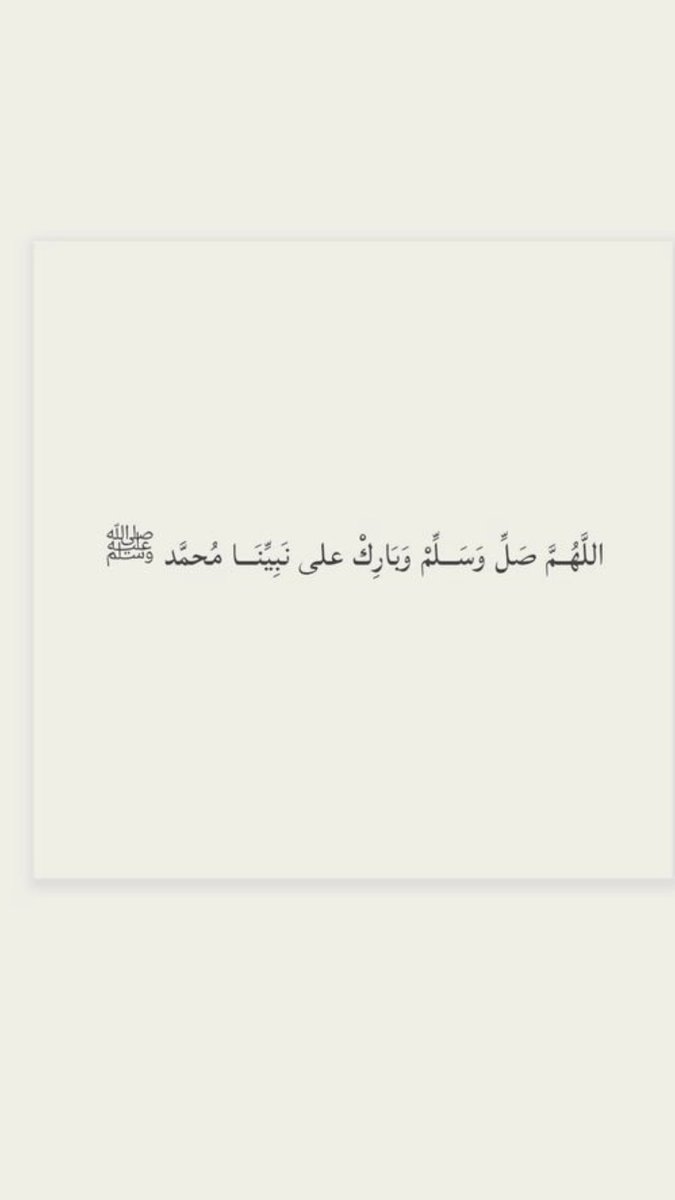 اللَّهُـمَّ صَلِّ وَسَــلِّمْ وَبَارِكْ على نَبِيِّنَــا مُحمَّد ﷺ